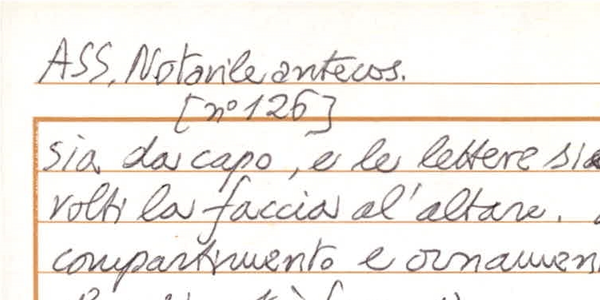 ASS, Notarile antecos.
[n° 126]
sia da capo, e le lettere
volti la faccia al'altare.
compartimento e